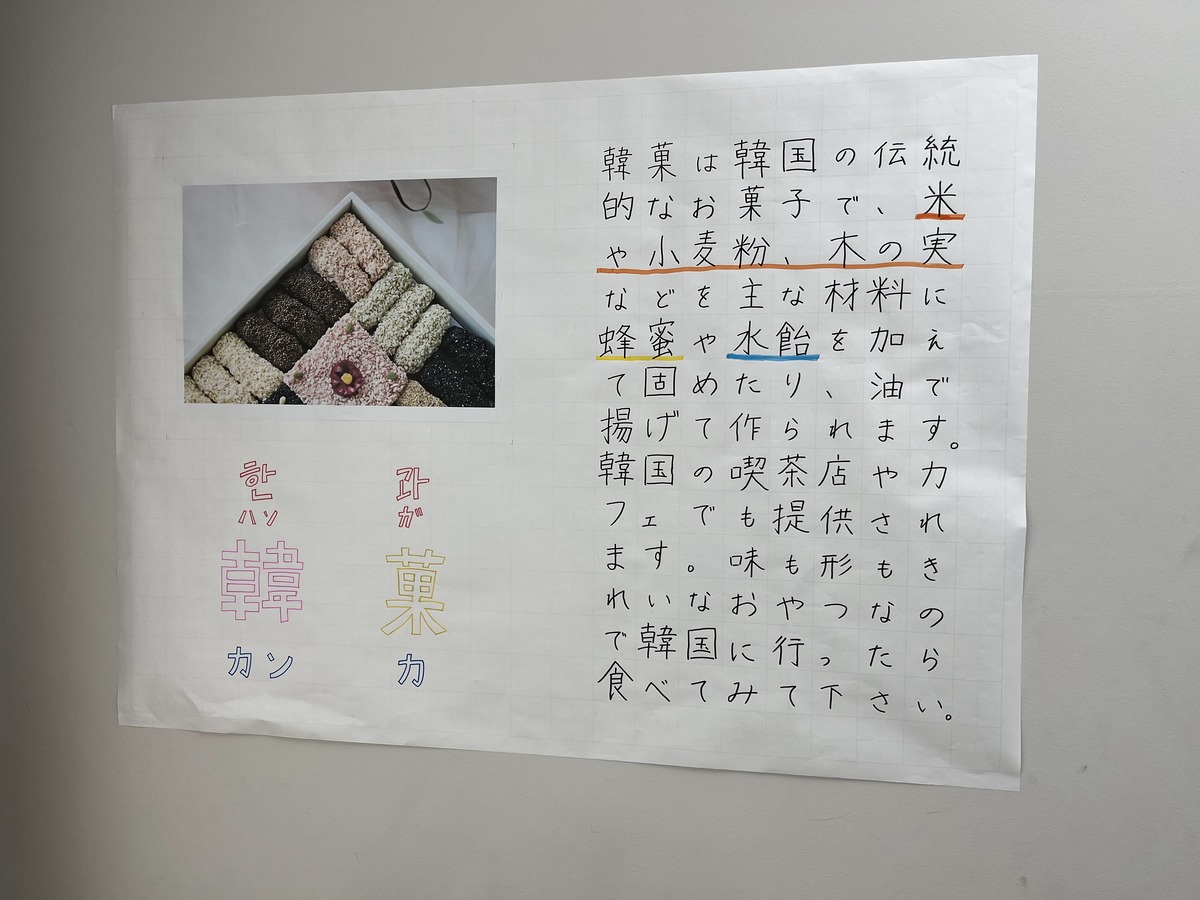 韓菓は韓国の伝統
的なお菓子で、米
や小麦粉、木の実
などを主な材料に
蜂蜜や水飴を加え
て固めたり、油で
揚げて作られます。
韓国の喫茶店やカ
フェでも提供され
ます。味も形もき
れいなおやつなの
で韓国に行ったら
食べてみて下さい。
한 과
ハン ガ
韓 菓
カン カ